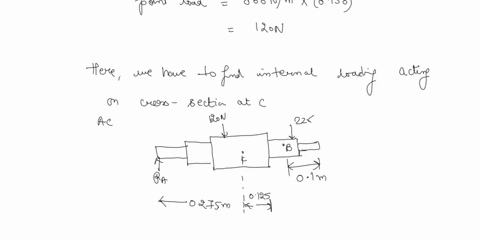 point load = 800N/m x (0.150)
= 120N
Here, we have to find internal loading acting
on cross-section at C
AC
120N
225
A
C
B
RA
0.1m
0.275m
0.125